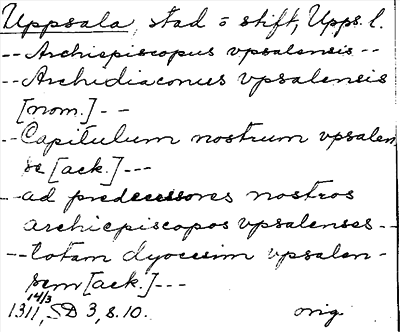 Uppsala, stad o stift, Upps. l.
-- Archiepiscopus vpsalensis --
-- Archidiaconus vpsalensis
[nom.] --
-- Capitulum nostrum vpsalen
se [ack.] ---
-- ad predecessores nostros
archiepiscopos vpsalenses --
-- totam dyocesim vpsalen-
sem [ack.] ---
14/3
1311, SD 3, s. 10. orig.